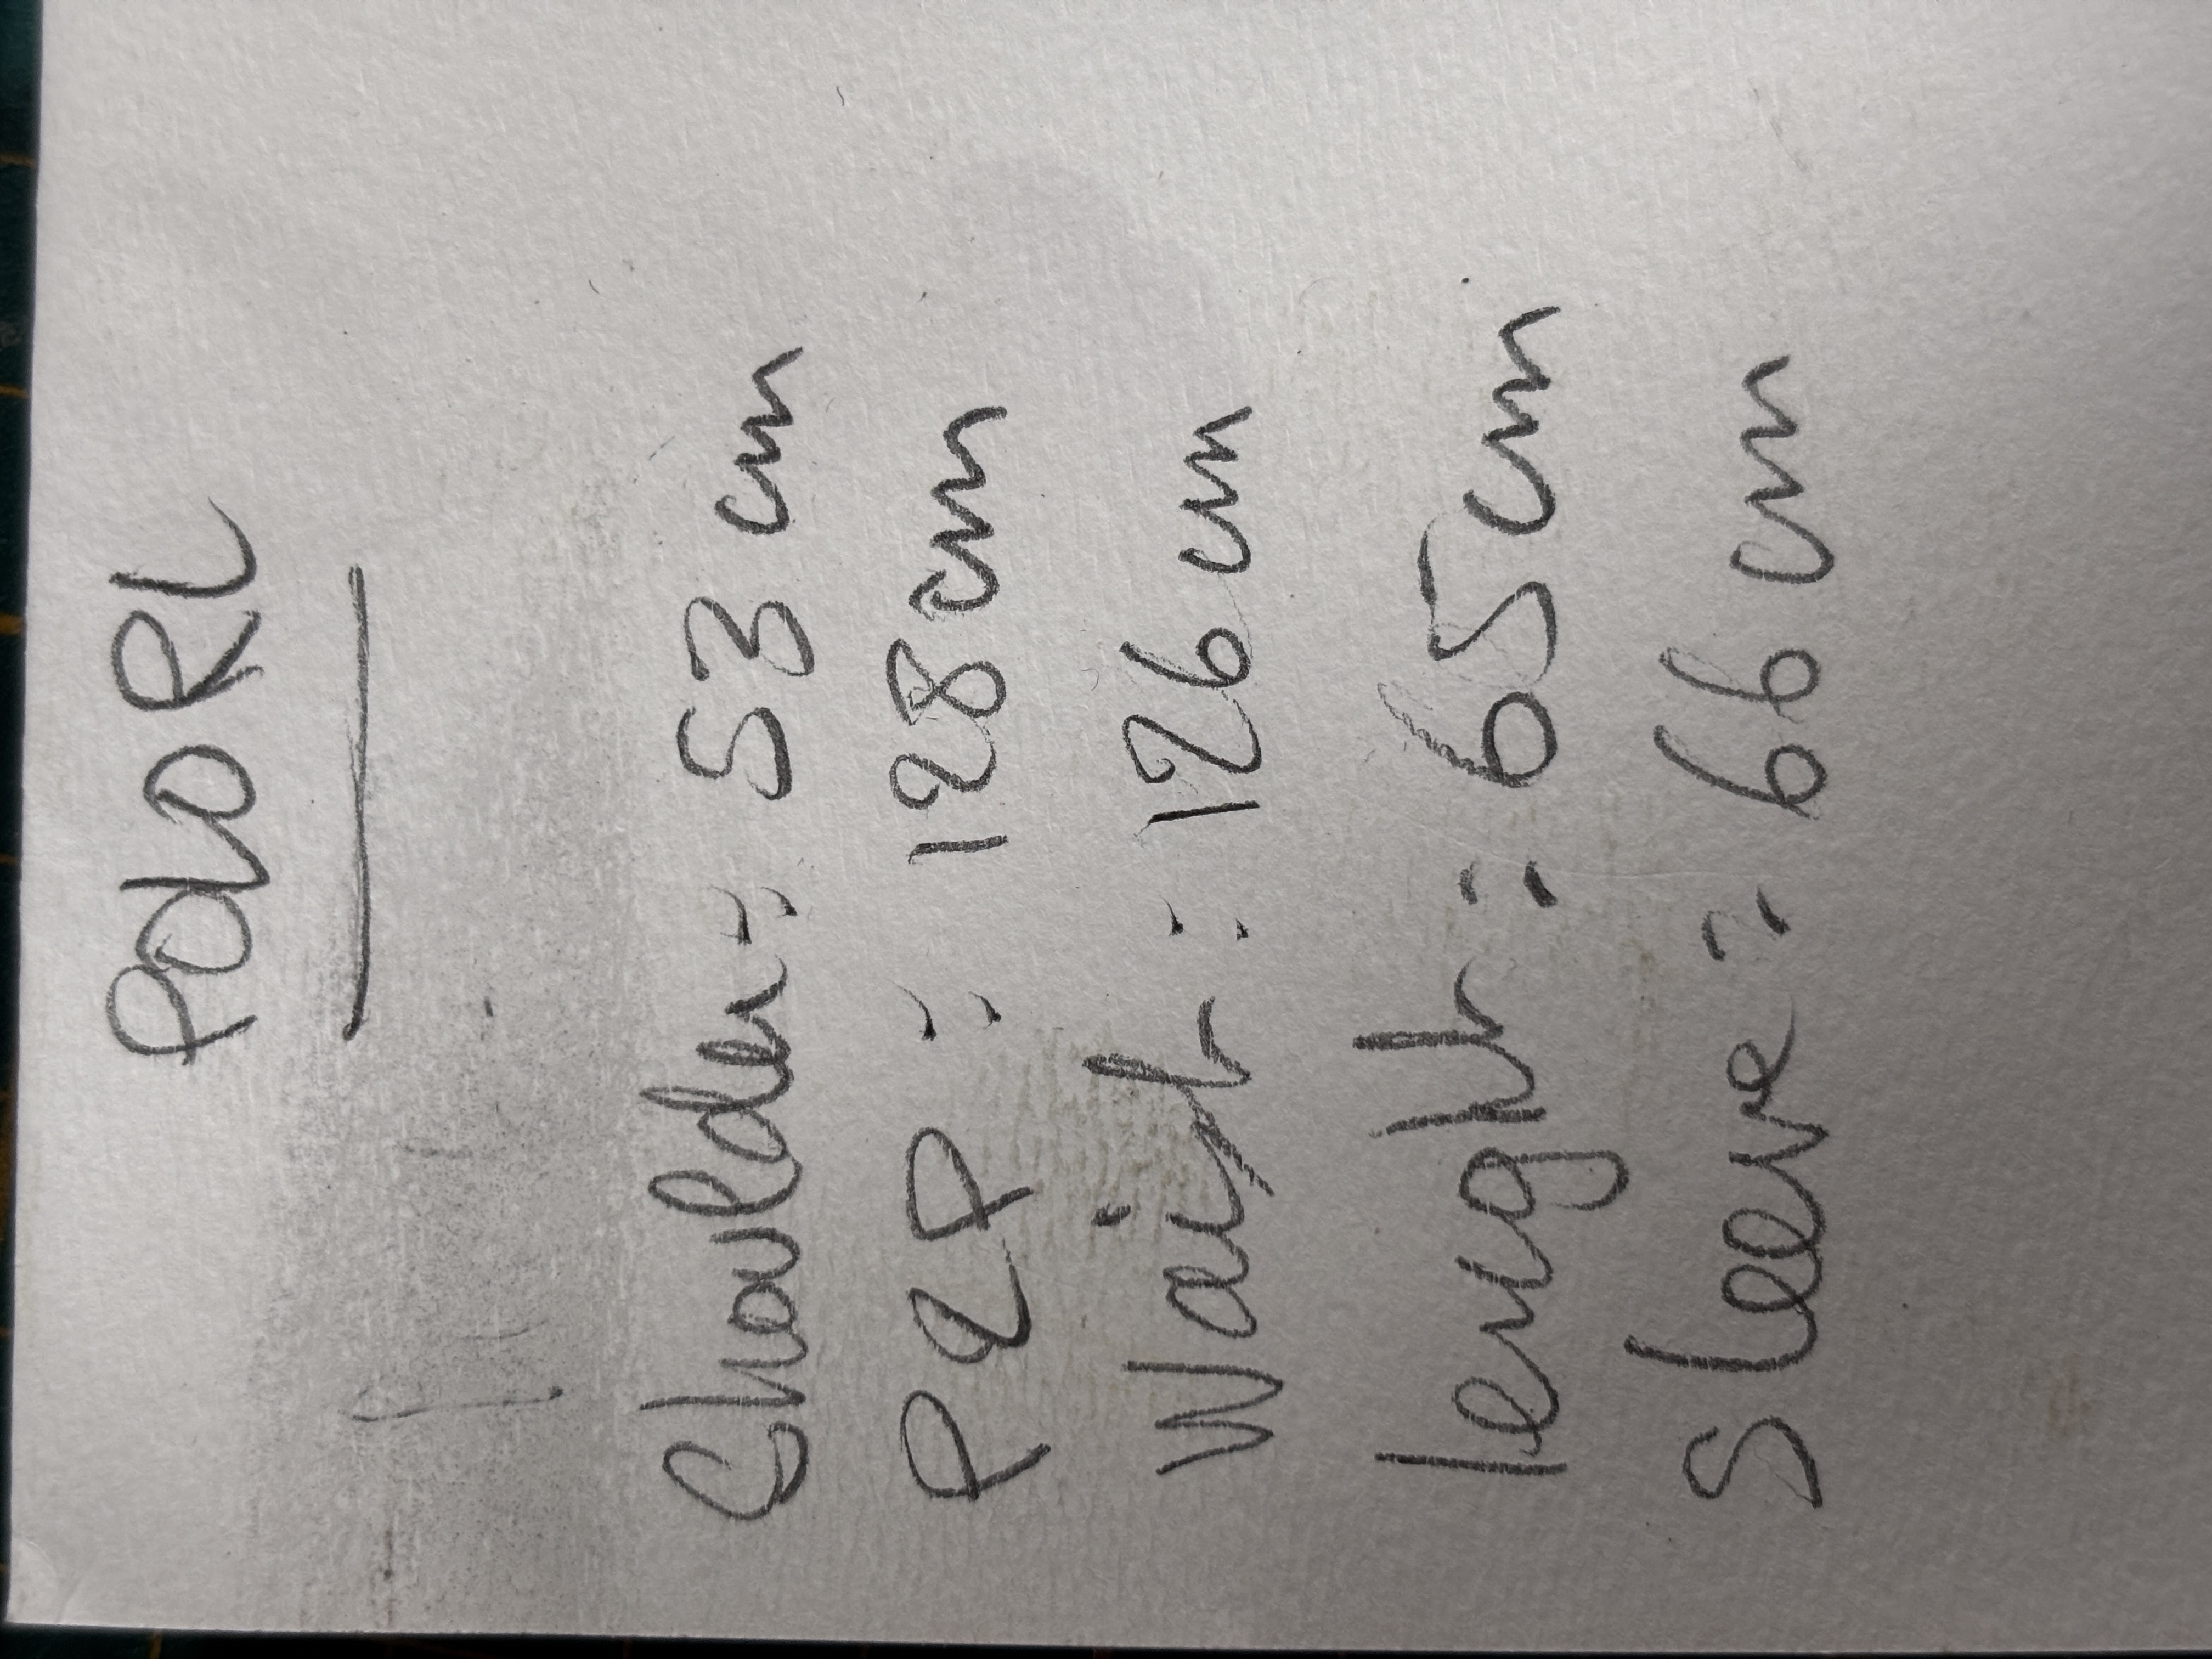 POLO RL
Shoulder: 53 cm
P2P: 128cm
Waist: 126cm
length: 65cm
Sleeve: 66cm